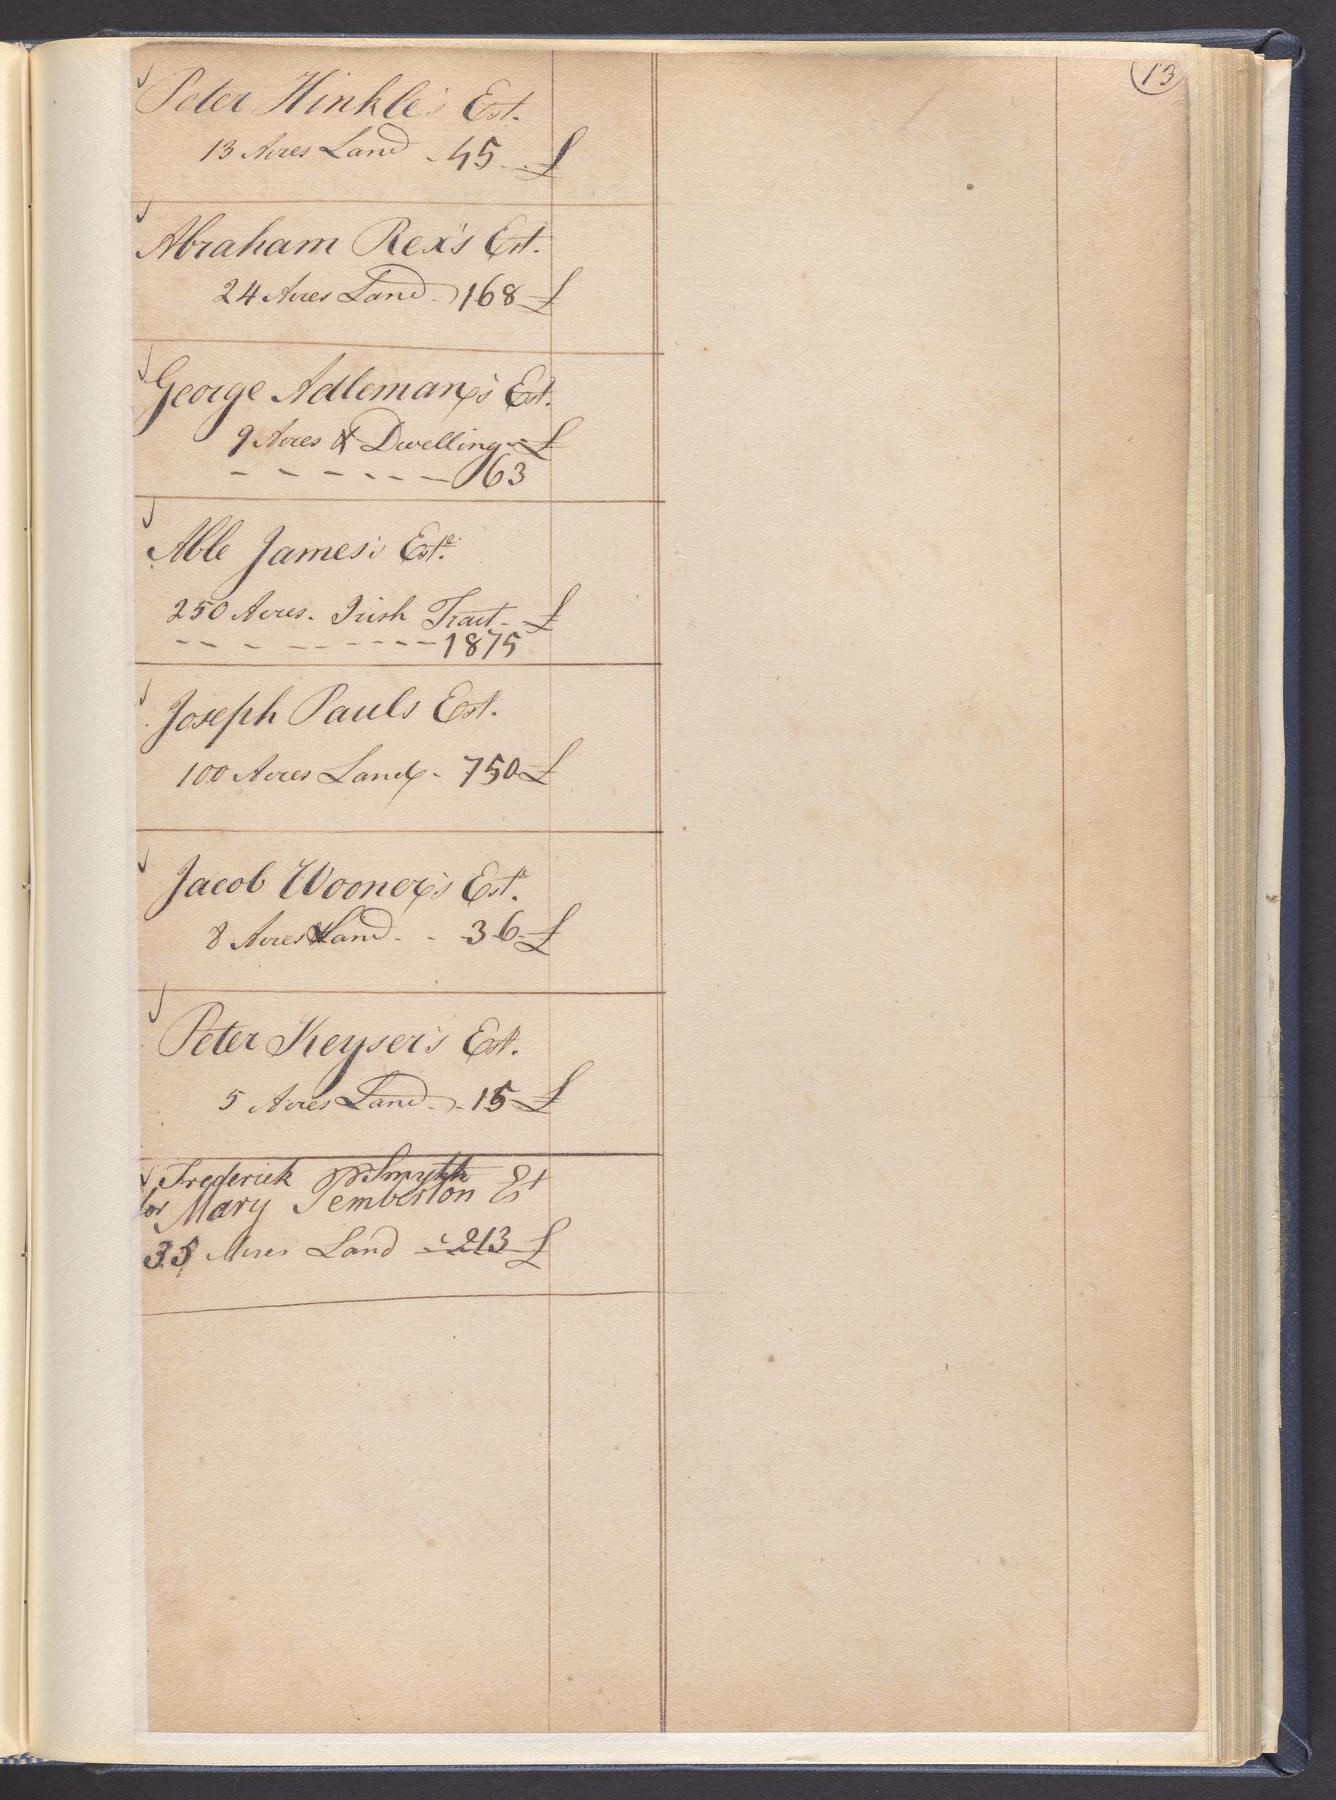 13
Peter Hinkle's Est.
13 Acres Land - 45 - £
Abraham Rex's Est.
24 Acres Land - 168 £
George Adleman's Est.
9 Acres & Dwelling - £
- - - - - - 63
Able James's Est.e
250 Acres. Irish Tract - £
- - - - - - - 1875
Joseph Pauls Est.
100 Acres Land - 750 £
Jacob Wooner's Est.
8 Acres Land - - 36 £
Peter Keyser's Est.
5 Acres Land - 15 £
Frederick Smyth
for Mary Pemberton Est
35 Acres Land - 213 £